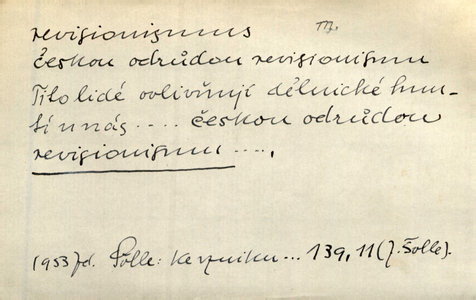 revisionismus m.
českou odrůdou revisionismu
Tito lidé ovlivňují dělnické hnu-
tí u nás .... českou odrůdou
revisionismu ....,
1953 fd. Šolle: Ke vzniku ... 139, 11 (J. Šolle).